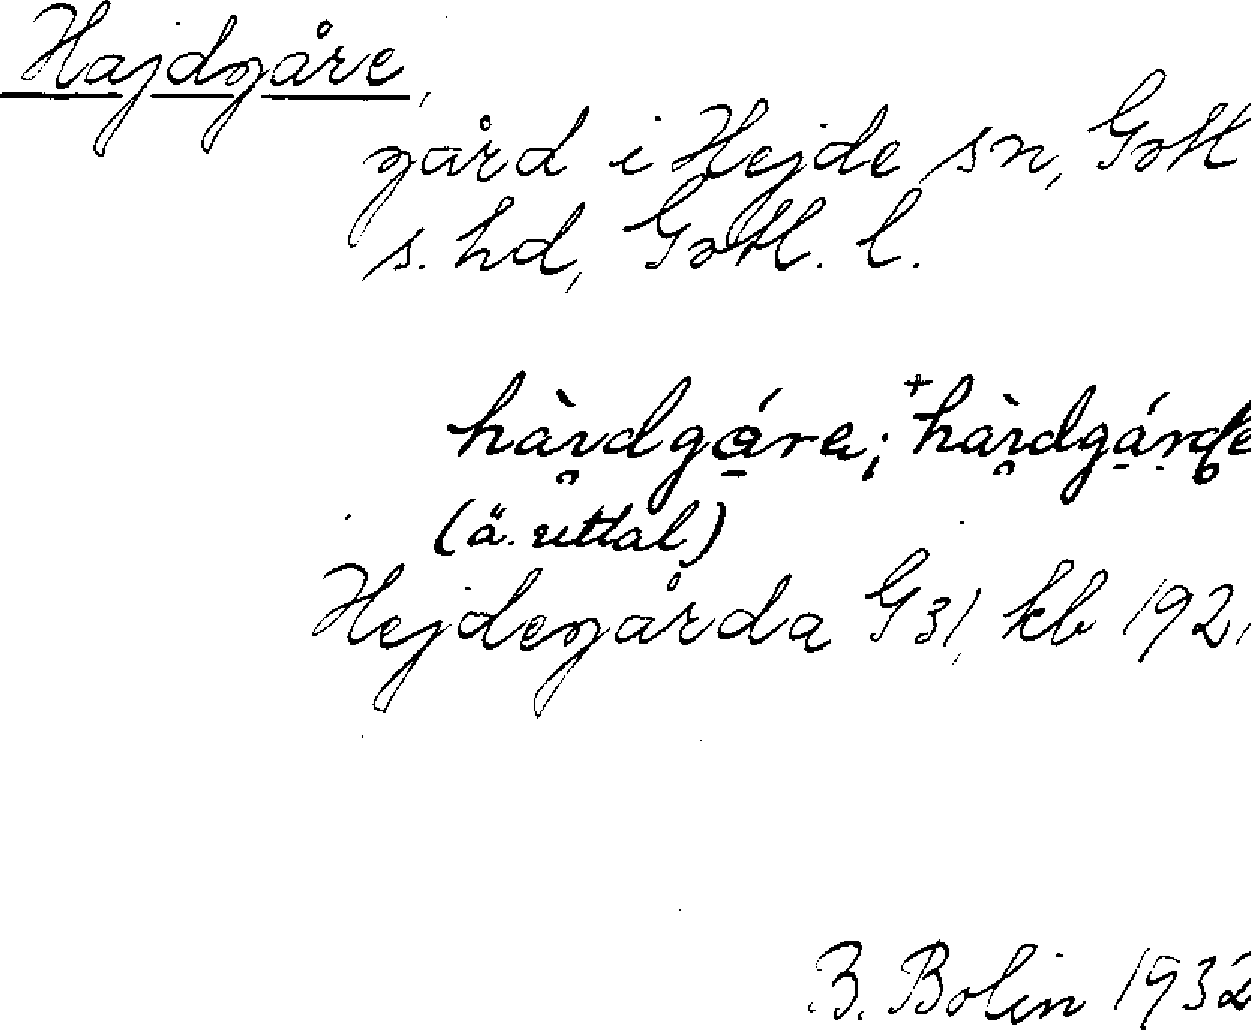 Hajdgåre,
gård i Hejde sn, Gotl
s. hd, Gotl. l.
(ä. uttal)
Hejdegårda G31, kb 192
B. Bolin 1932